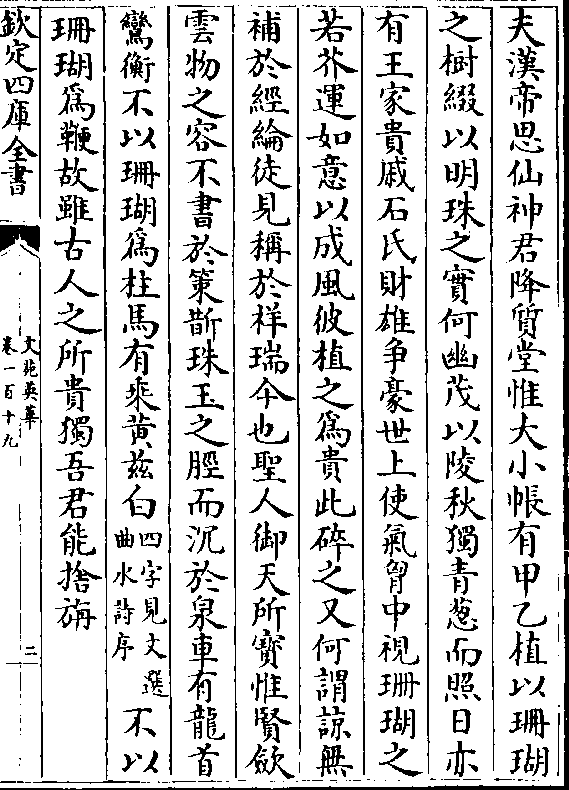 夫漢帝思仙神君降質堂惟大小帳有甲乙植以珊瑚
之樹綴以明珠之實何幽茂以陵秋獨青葱而照日亦
有王家貴戚石氏財雄爭豪世上使氣胷中視珊瑚之
若芥運如意以成風彼植之為貴此碎之又何謂諒無
補於經綸徒見稱於祥瑞今也聖人御天所寳惟賢歛
雲物之容不書於策斮珠玉之脛而沉於泉車有龍首
鸞衡不以珊瑚為柱馬有乘黃茲白四字見文選曲水詩序不以
珊瑚為鞭故雖古人之所貴獨吾君能捨旃
欽定四庫全書
文苑英華
卷一百十九
二